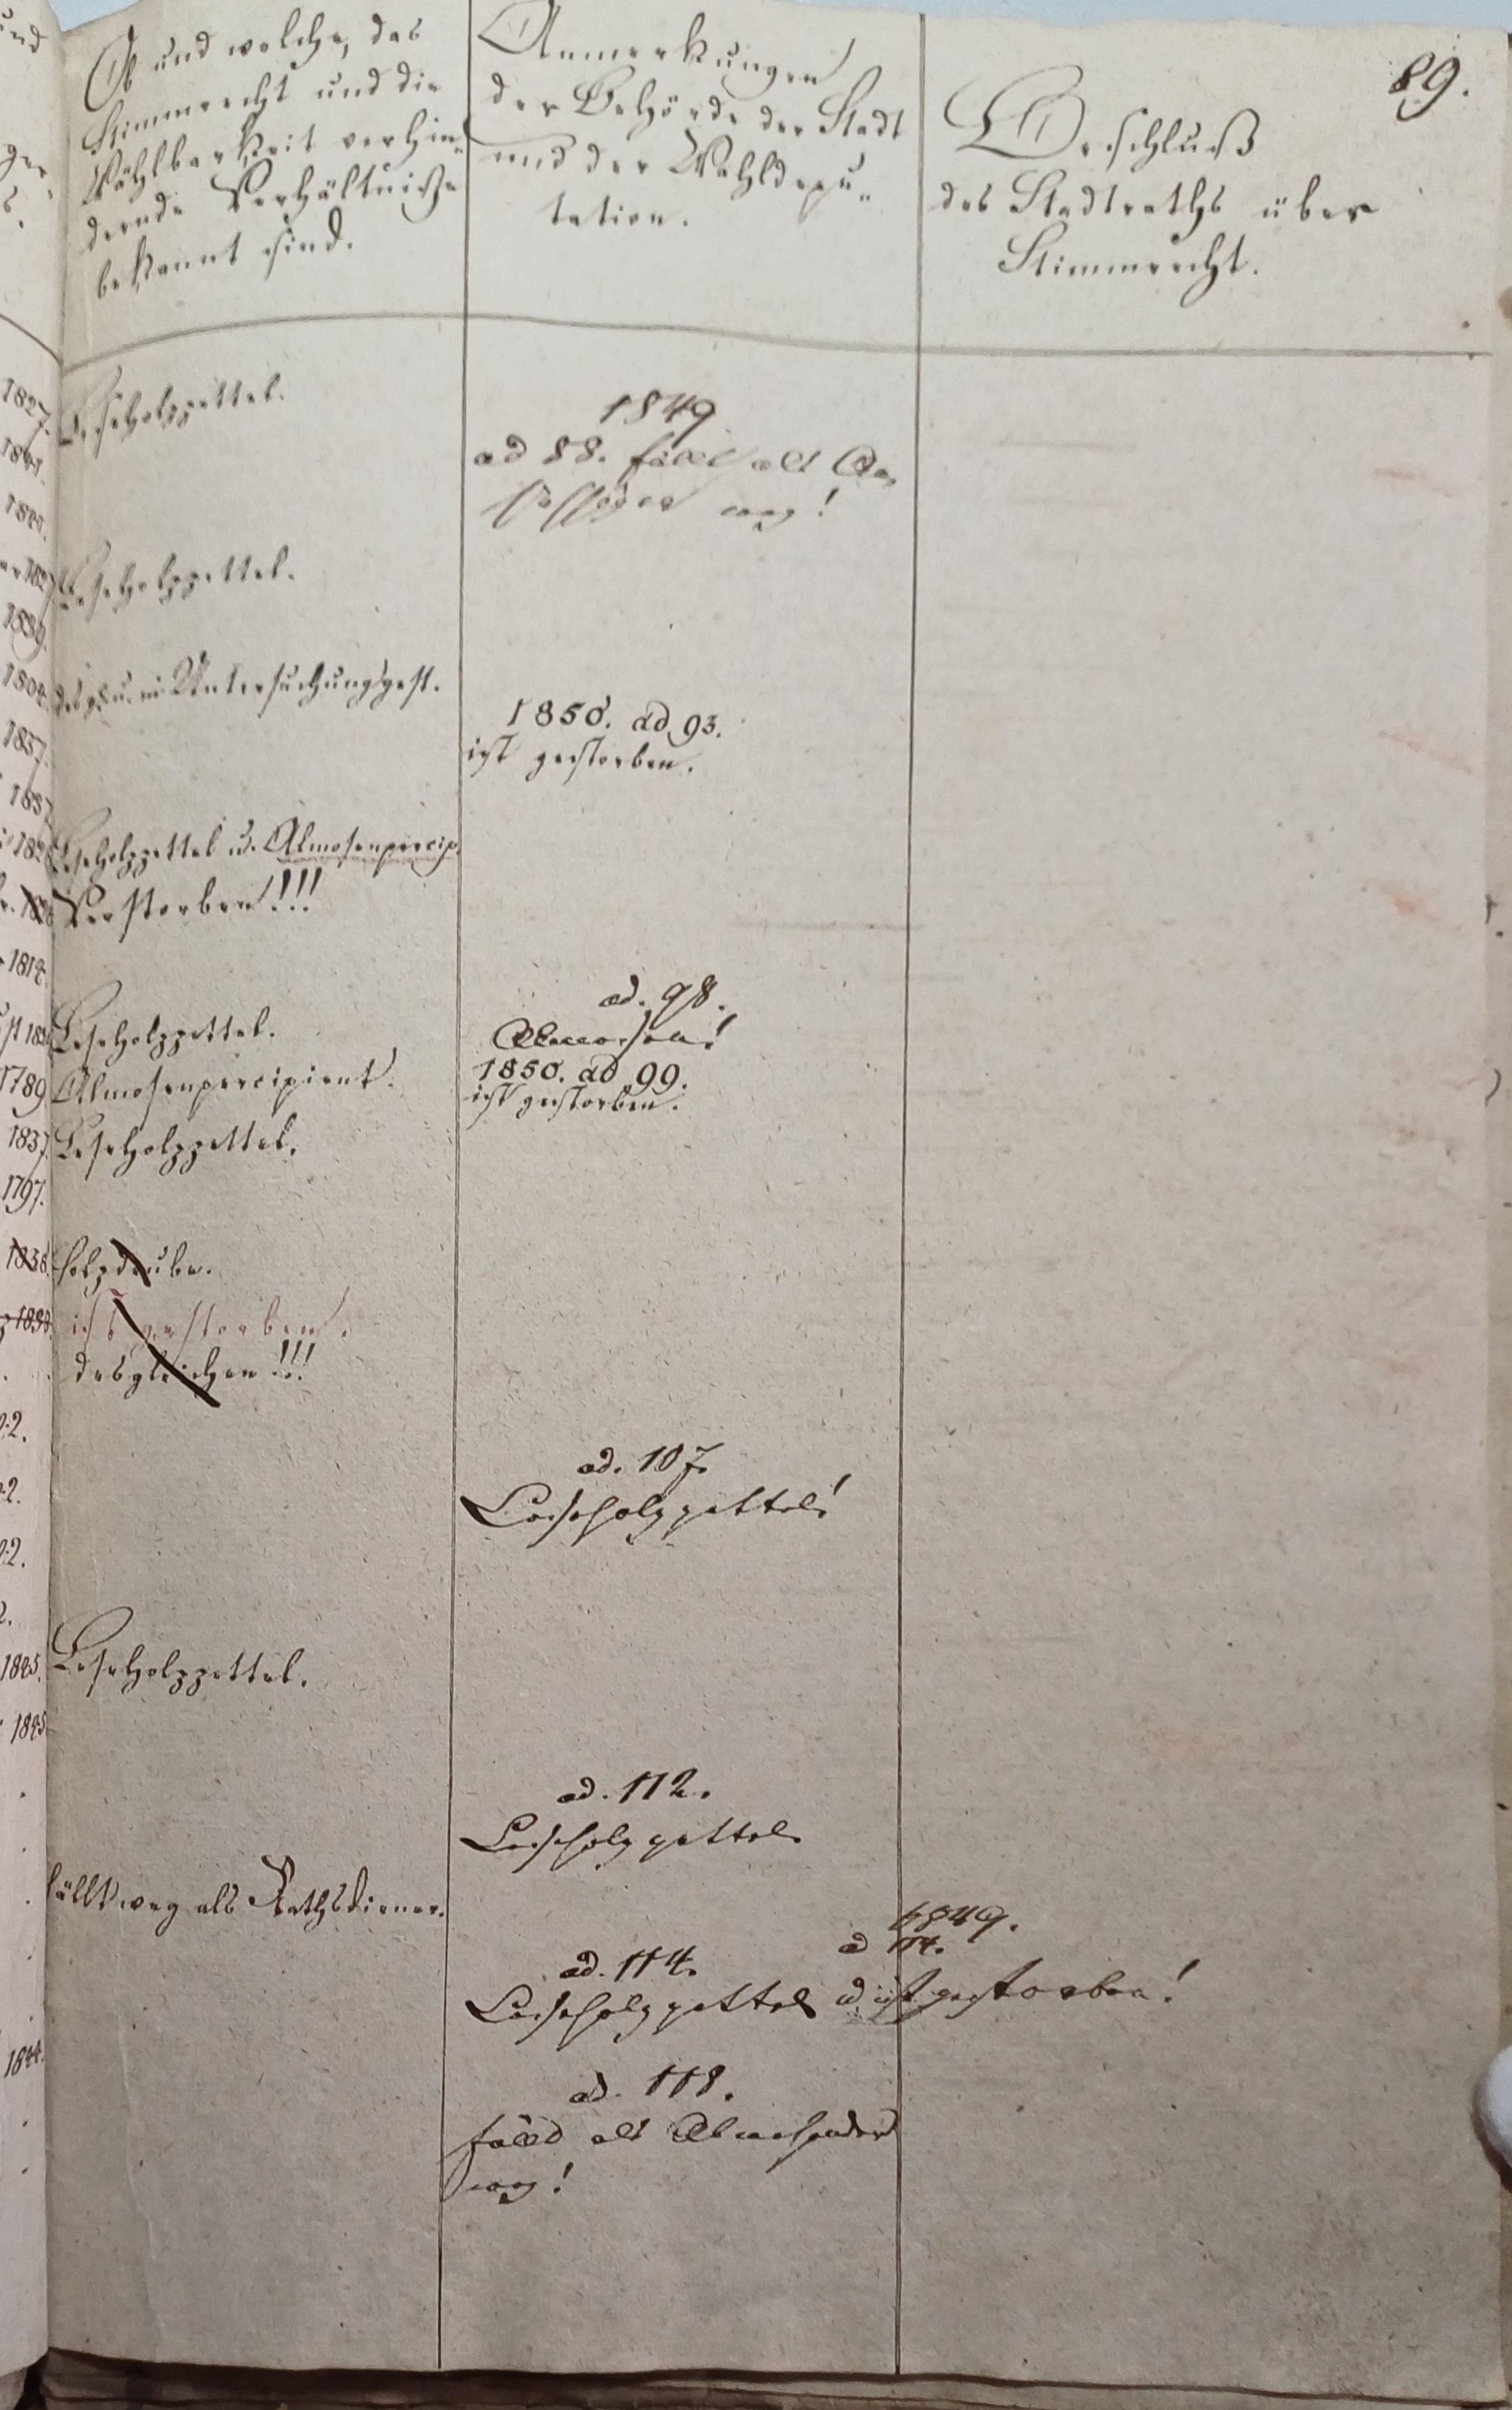 89.
Ob und welche, das
Stimmrecht und die
Wählbarkeit verhin-
dernde Verhältniße
bekannt sind.
Anmerkungen
der Behörde der Stadt
und der Wahldepu-
tation.
Beschluß
des Stadtraths über
Stimmrecht.
1827.
Leseholzzettel.
1849
ad 88. fällt als
weg!
1841.
1841.
Leseholzzettel.
1839.
1804.
desgl. u. in Untersuchung gest.
1837.
1850. ad 93.
ist gestorben.
1837
Leseholzzettel u. Almosenpercip.
Verstorben!!!
1814.
ad. 98.
Leseholzzettel.
Almosen!
1789
Almosenpercipient.
1850. ad 99.
ist gestorben.
1837
Leseholzzettel.
1797.
1838.
Holzdeube.
ist gestorben.
desgleichen!!!
ad. 107.
Leseholzzettel!
1845.
Leseholzzettel.
1845
ad. 112.
Leseholzzettel.
fällt weg als Rathsdiener.
1849.
ad. 114.
ad 114.
Leseholzzettel u ist gestorben!
1844.
ad. 118.
fälld als Abwesender
weg!